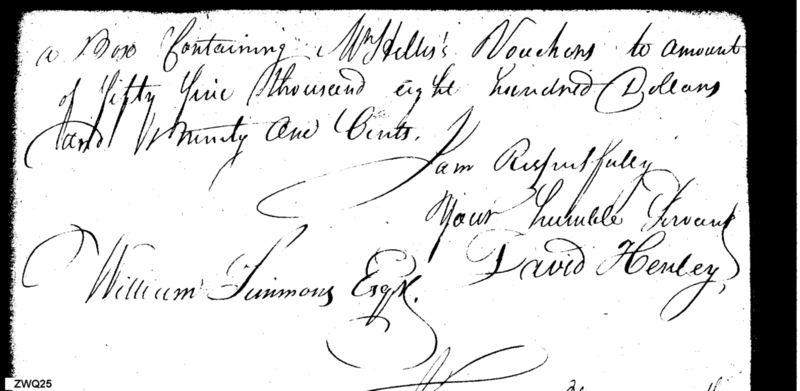 a Box Containing Mr Hillis's Vouchers to amount
of fifty five thousand eight hundred Dollars
and Ninety One Cents.
I am Respectfully
Your humble Servant
David Henley
William Simmons Esqr.
ZWQ25